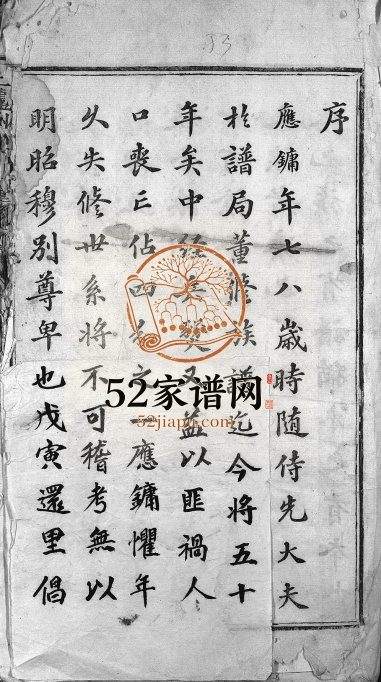 序
應鏞年七八歲時隨侍先大夫
於譜局董修族譜迄今將五十
年矣中經又益以匪禍人
口喪亡佔四分之一應鏞懼年
久失修世系將不可稽考無以
明昭穆別尊卑也戊寅還里倡
53
52家谱网
52jiapu.com